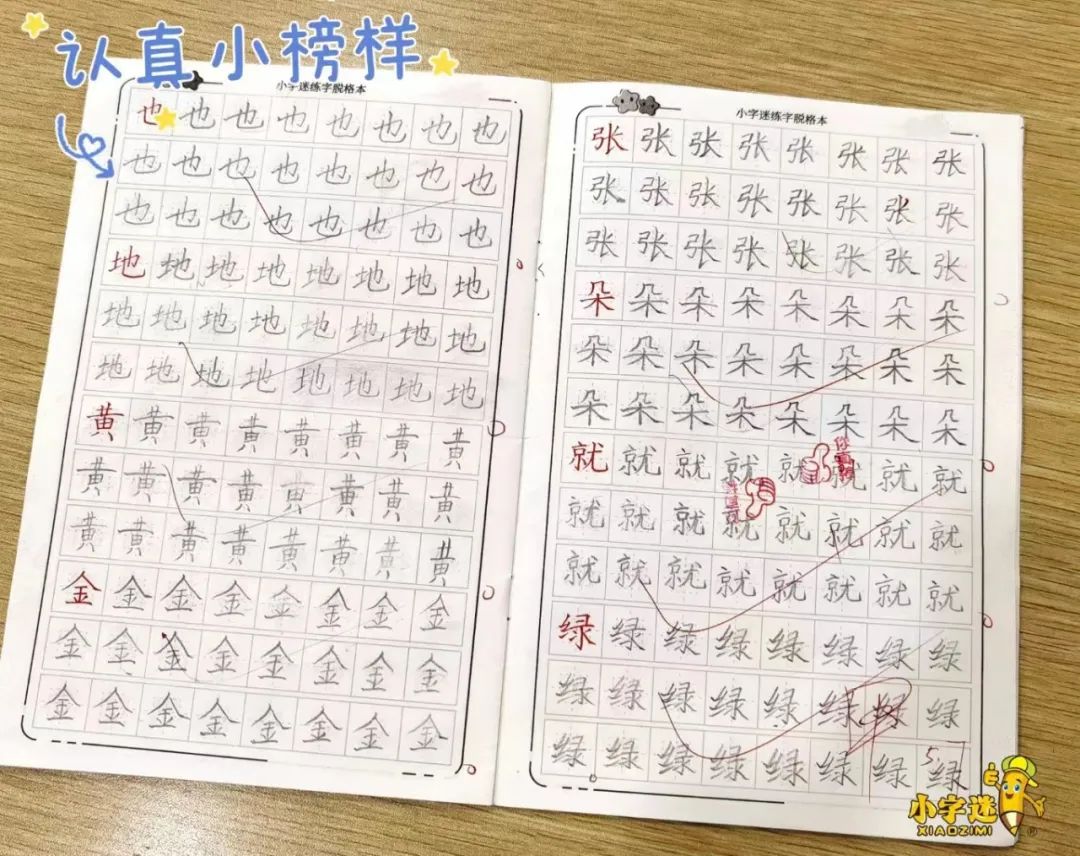 认真小榜样
小字迷练字脱格本
也也也也也也也也
也也也也也也也也
也也也也也也也也
地地地地地地地地
地地地地地地地地
地地地地地地地地
黄黄黄黄黄黄黄黄
黄黄黄黄黄黄黄黄
黄黄黄黄黄黄黄黄
金金金金金金金金
金金金金金金金金
金金金金金金金金
小字迷练字脱格本
张张张张张张张张
张张张张张张张张
张张张张张张张张
朵朵朵朵朵朵朵朵
朵朵朵朵朵朵朵朵
朵朵朵朵朵朵朵朵
就就就就就就就就
就就就就就就就就
就就就就就就就就
绿绿绿绿绿绿绿绿
绿绿绿绿绿绿绿绿
绿绿绿绿绿绿绿绿
5
小字迷
XIAOZIMI
®